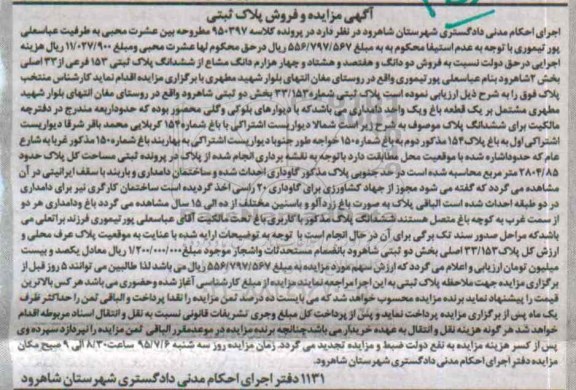 آگهی مزایده و فروش پلاک ثبتی
اجرای احکام مدنی دادگستری شهرستان شاهرود در نظر دارد در پرونده کلاسه ۹۵۰۳۹۷ مطروحه بین عشرت محبی به طرفیت عباسعلی
پور تیموری با توجه به عدم استیفا محکوم به به مبلغ ۵۵۶/۷۹۷/۵۶۷ ریال در حق محکوم لها عشرت محبی ومبلغ ۱۱/۰۲۷/۹۰۰ ریال هزینه
اجرایی در حق دولت نسبت به فروش دو دانگ و هفتصد و هشتاد و چهار هزارم دانگ مشاع از ششدانگ پلاک ثبتی ۱۵۳ فرعی از ۳۳ اصلی
بخش ۲ شاهرود بنام عباسعلی پور تیموری واقع در روستای مغان انتهای بلوار شهید مطهری با برگزاری مزایده اقدام نماید کارشناس منتخب
پلاک فوق را به شرح ذیل ارزیابی نموده است پلاک ثبتی شماره ۳۳/۱۵۳ بخش دو ثبتی شاهرود واقع در روستای مغان انتهای بلوار شهید
مطهری مشتمل بر یک قطعه باغ و یک واحد دامداری می باشد که با دیوارهای بلوکی وگلی محصور بوده که حدود اربعه مندرج در دفترچه
مالکیت برای ششدانگ پلاک موصوف به شرح زیر است شمالا دیواریست اشتراکی با باغ شماره ۱۵۲ کربلایی محمد باقر شرقا دیواریست
اشتراکی اول به باغ پلاک ۱۵۴ مذکور دوم به باغ شماره ۱۵۰ خواجه طور جنوبا دیواریست اشتراکی به بهاربند باغ شماره ۱۵۰ مذکور غربا به شارع
عام که حدود اشاره شده با موقعیت محل مطابقت دارد با توجه به نقشه برداری انجام شده از پلاک در پرونده ثبتی مساحت کل پلاک حدود
۲۸۰۴/۸۵ متر مربع محاسبه شده است در حد جنوبی پلاک مذکور گاوداری احداث شده و ساختمان دامداری و باربند با سقف ایرانیتی در آن
مشاهده می گردد که گفته می شود مجوز از جهاد کشاورزی برای گاوداری ۲۰ راسی اخذ گردیده است ساختمان کارگری نیز برای دامداری
در دو طبقه احداث شده است الباقی پلاک به صورت باغ زردآلو و یاسنین مختلف از ده الی ۱۵ سال مشاهده می گردد باغ ودامداری هر دو
از سمت غرب به کوچه باغ متصل هستند ششدانگ پلاک مذکور با کاربری باغ تحت مالکیت آقای عباسعلی پور تیموری فرزند براتعلی می
باشد که مراحل صدور سند تک برگی برای آن در حال انجام است با توجه به توضیحات ارایه شده با عنایت به موقعیت پلاک عرف محلی و
ارزش کل پلاک ۳۳/۱۵۳ اصلی بخش دو ثبتی شاهرود بانضمام مستحدثات واشجار موجود مبلغ ۱/۲۰۰/۰۰۰/۰۰۰ ریال معادل یکصد و بیست
میلیون تومان ارزیابی و اعلام می گردد که ارزش سهم مورد مزایده به مبلغ ۵۵۶/۷۹۷/۵۶۷ ریال می باشد لذا طالبین می توانند ۵ روز قبل از
برگزاری مزایده جهت ملاحظه پلاک ثبتی به این اجرا مراجعه نمایند مزایده از مبلغ کارشناسی آغاز شده وحضوری می باشد هر کس بالاترین
قیمت را پیشنهاد نماید برنده مزایده محسوب خواهد شد که می بایست ده درصد ثمن مزایده را نقدا پرداخت و الباقی ثمن را حداکثر ظرف
یک ماه پس از برگزاری مزایده پرداخت نماید و پس از پرداخت کل مبلغ وجری تشریفات قانونی نسبت به نقل و انتقال اسناد مربوطه اقدام
خواهد شد هر گونه هزینه نقل و انتقال به عهده خریدار می باشد چنانچه برنده مزایده در موعد مقرر الباقی ثمن مزایده را نپردازد سپرده وی
پس از کسر هزینه مزایده به نفع دولت ضبط و مزایده تجدید می گردد. زمان مزایده روز سه شنبه ۹۵/۷/۶ ساعت ۸/۳۰ الی ۹ صبح مکان
مزایده دفتر اجرای احکام مدنی دادگستری شهرستان شاهرود.
۱۱۳۱ دفتر اجرای احکام مدنی دادگستری شهرستان شاهرود